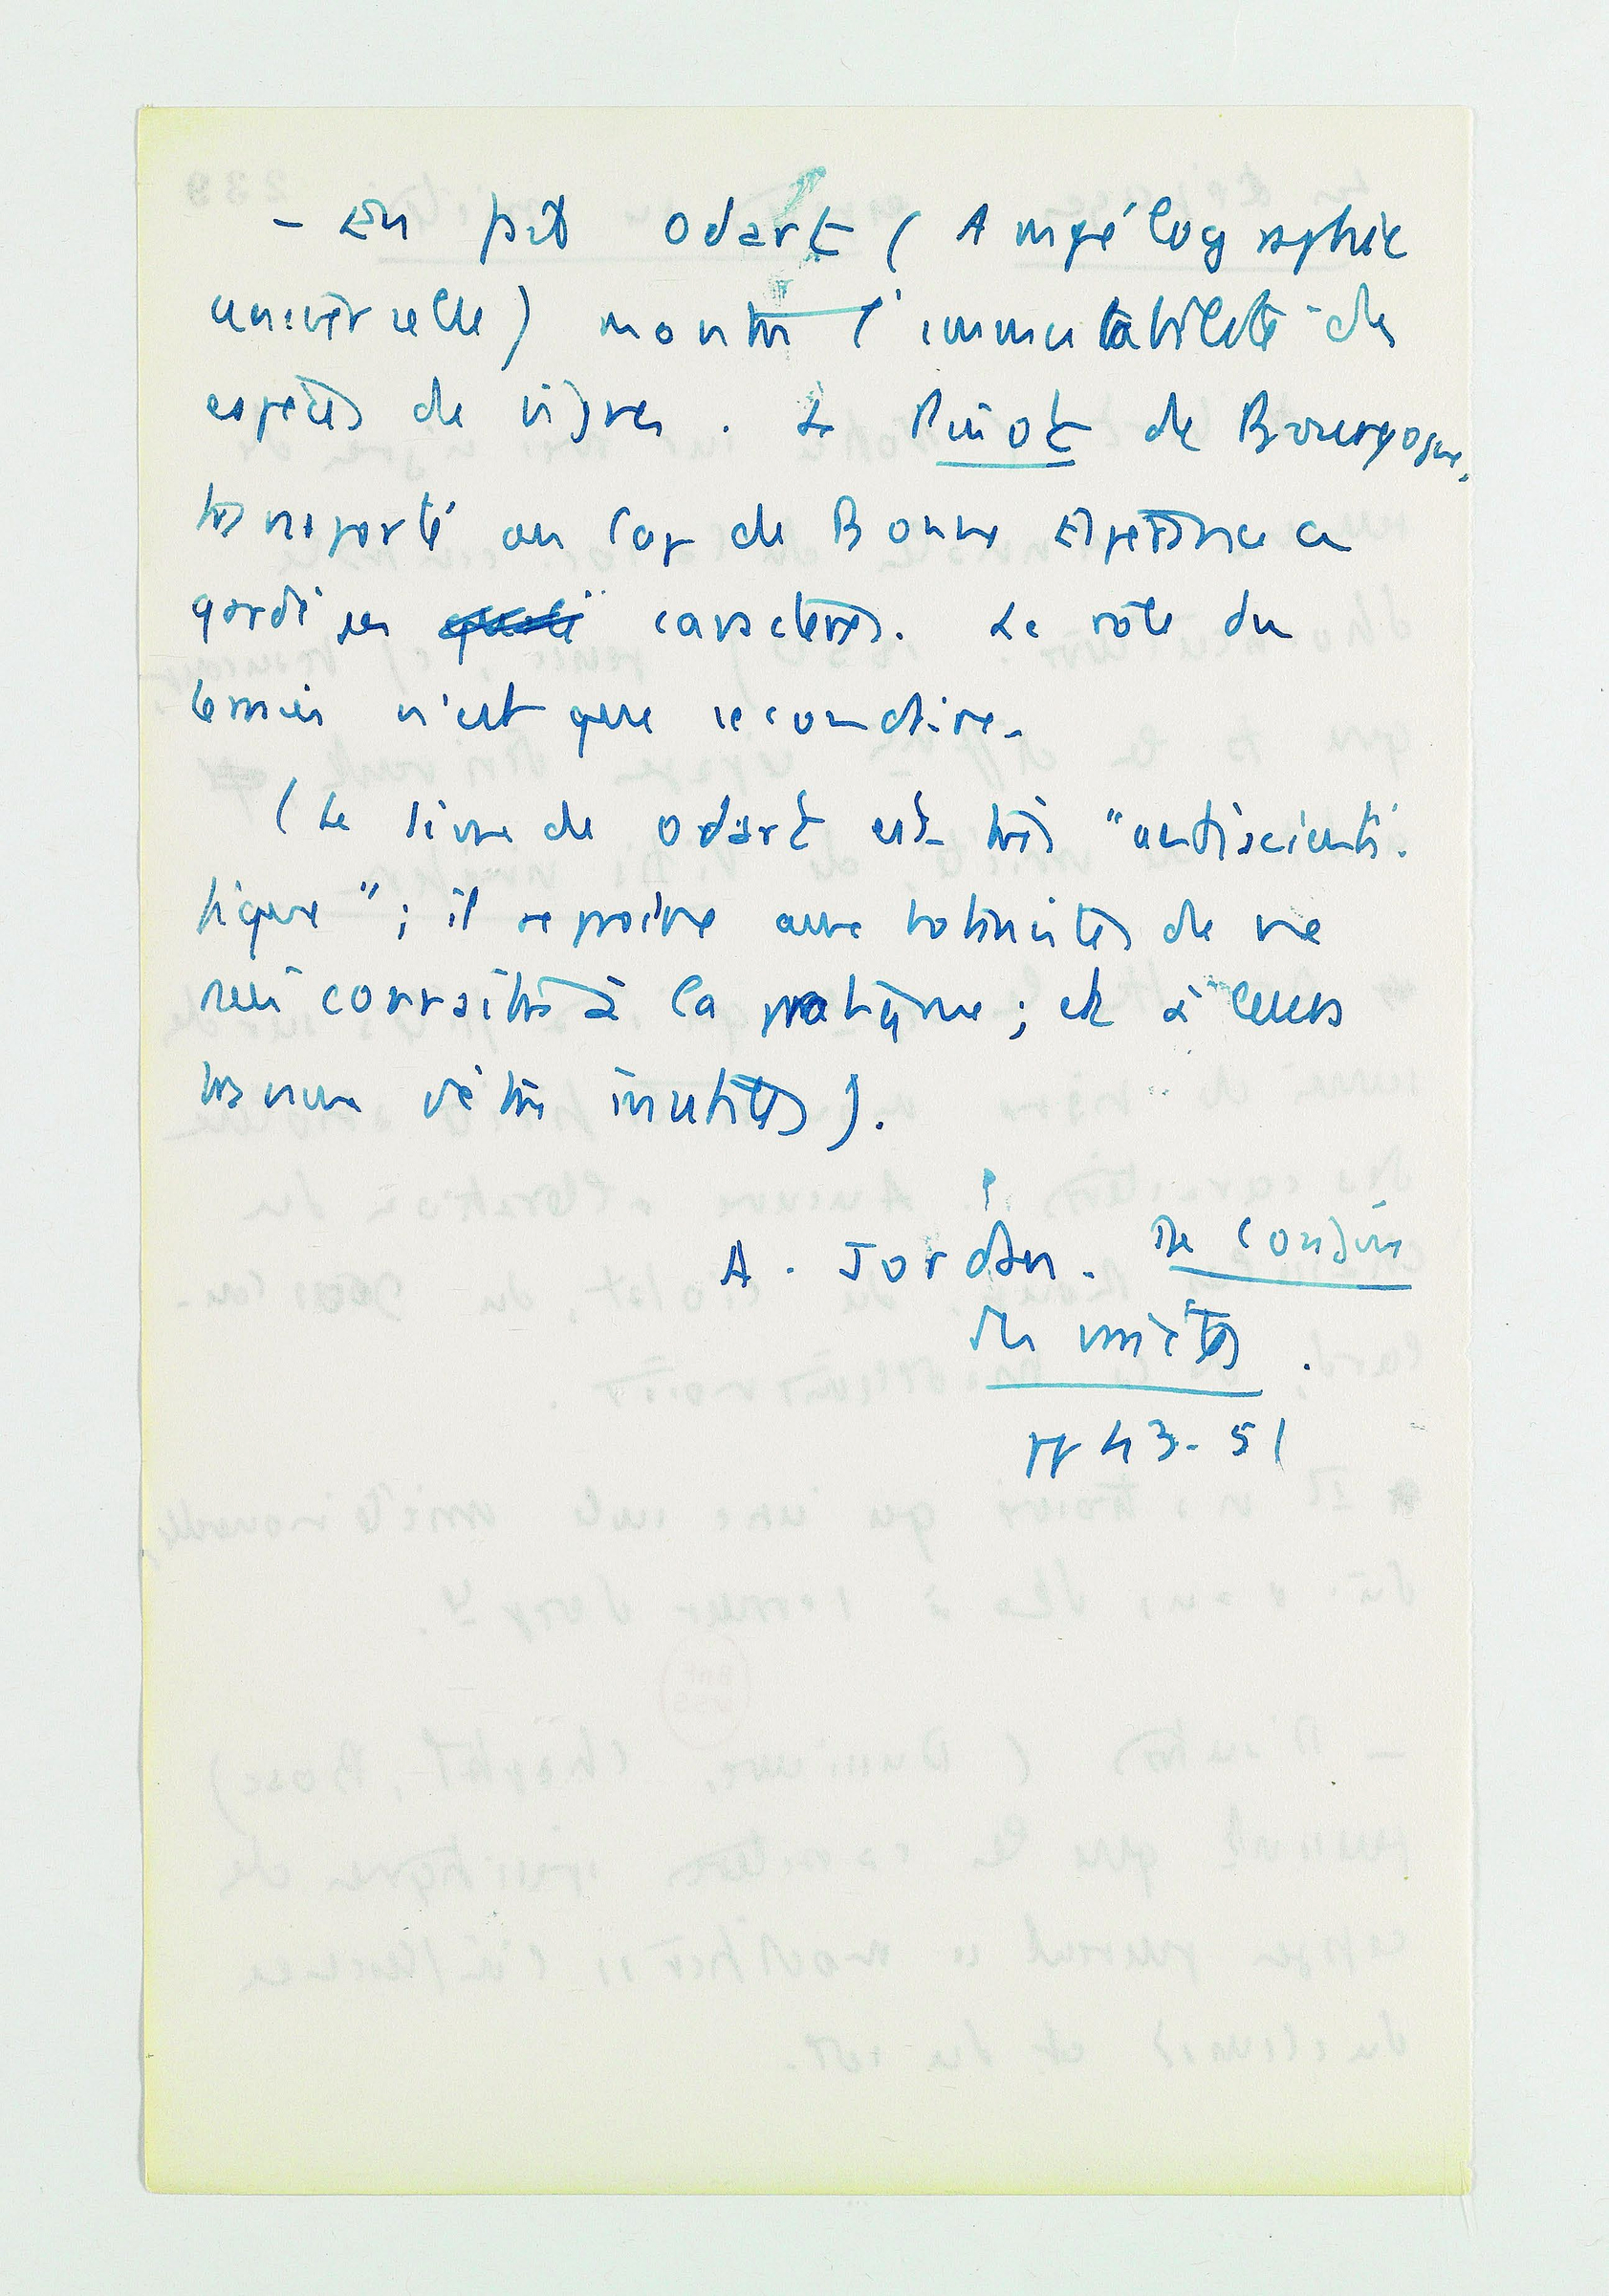 - En fait Odart (Ampélographie
universelle) montre l'immutabilité des
espèces de vignes. Le Pinot de Bourgogne,
transporté au Cap de Bonne Espérance a
gardé ses caractères. Le rôle du
terrain n'est que secondaire.
(Le livre de Odart est très "antiscienti-
fique"; il reproche aux botanistes de ne
rien connaître à la pratique; et à leurs
travaux d'être inutiles).
A. Jordan. De l'origine
des variétés.
pp 43-51